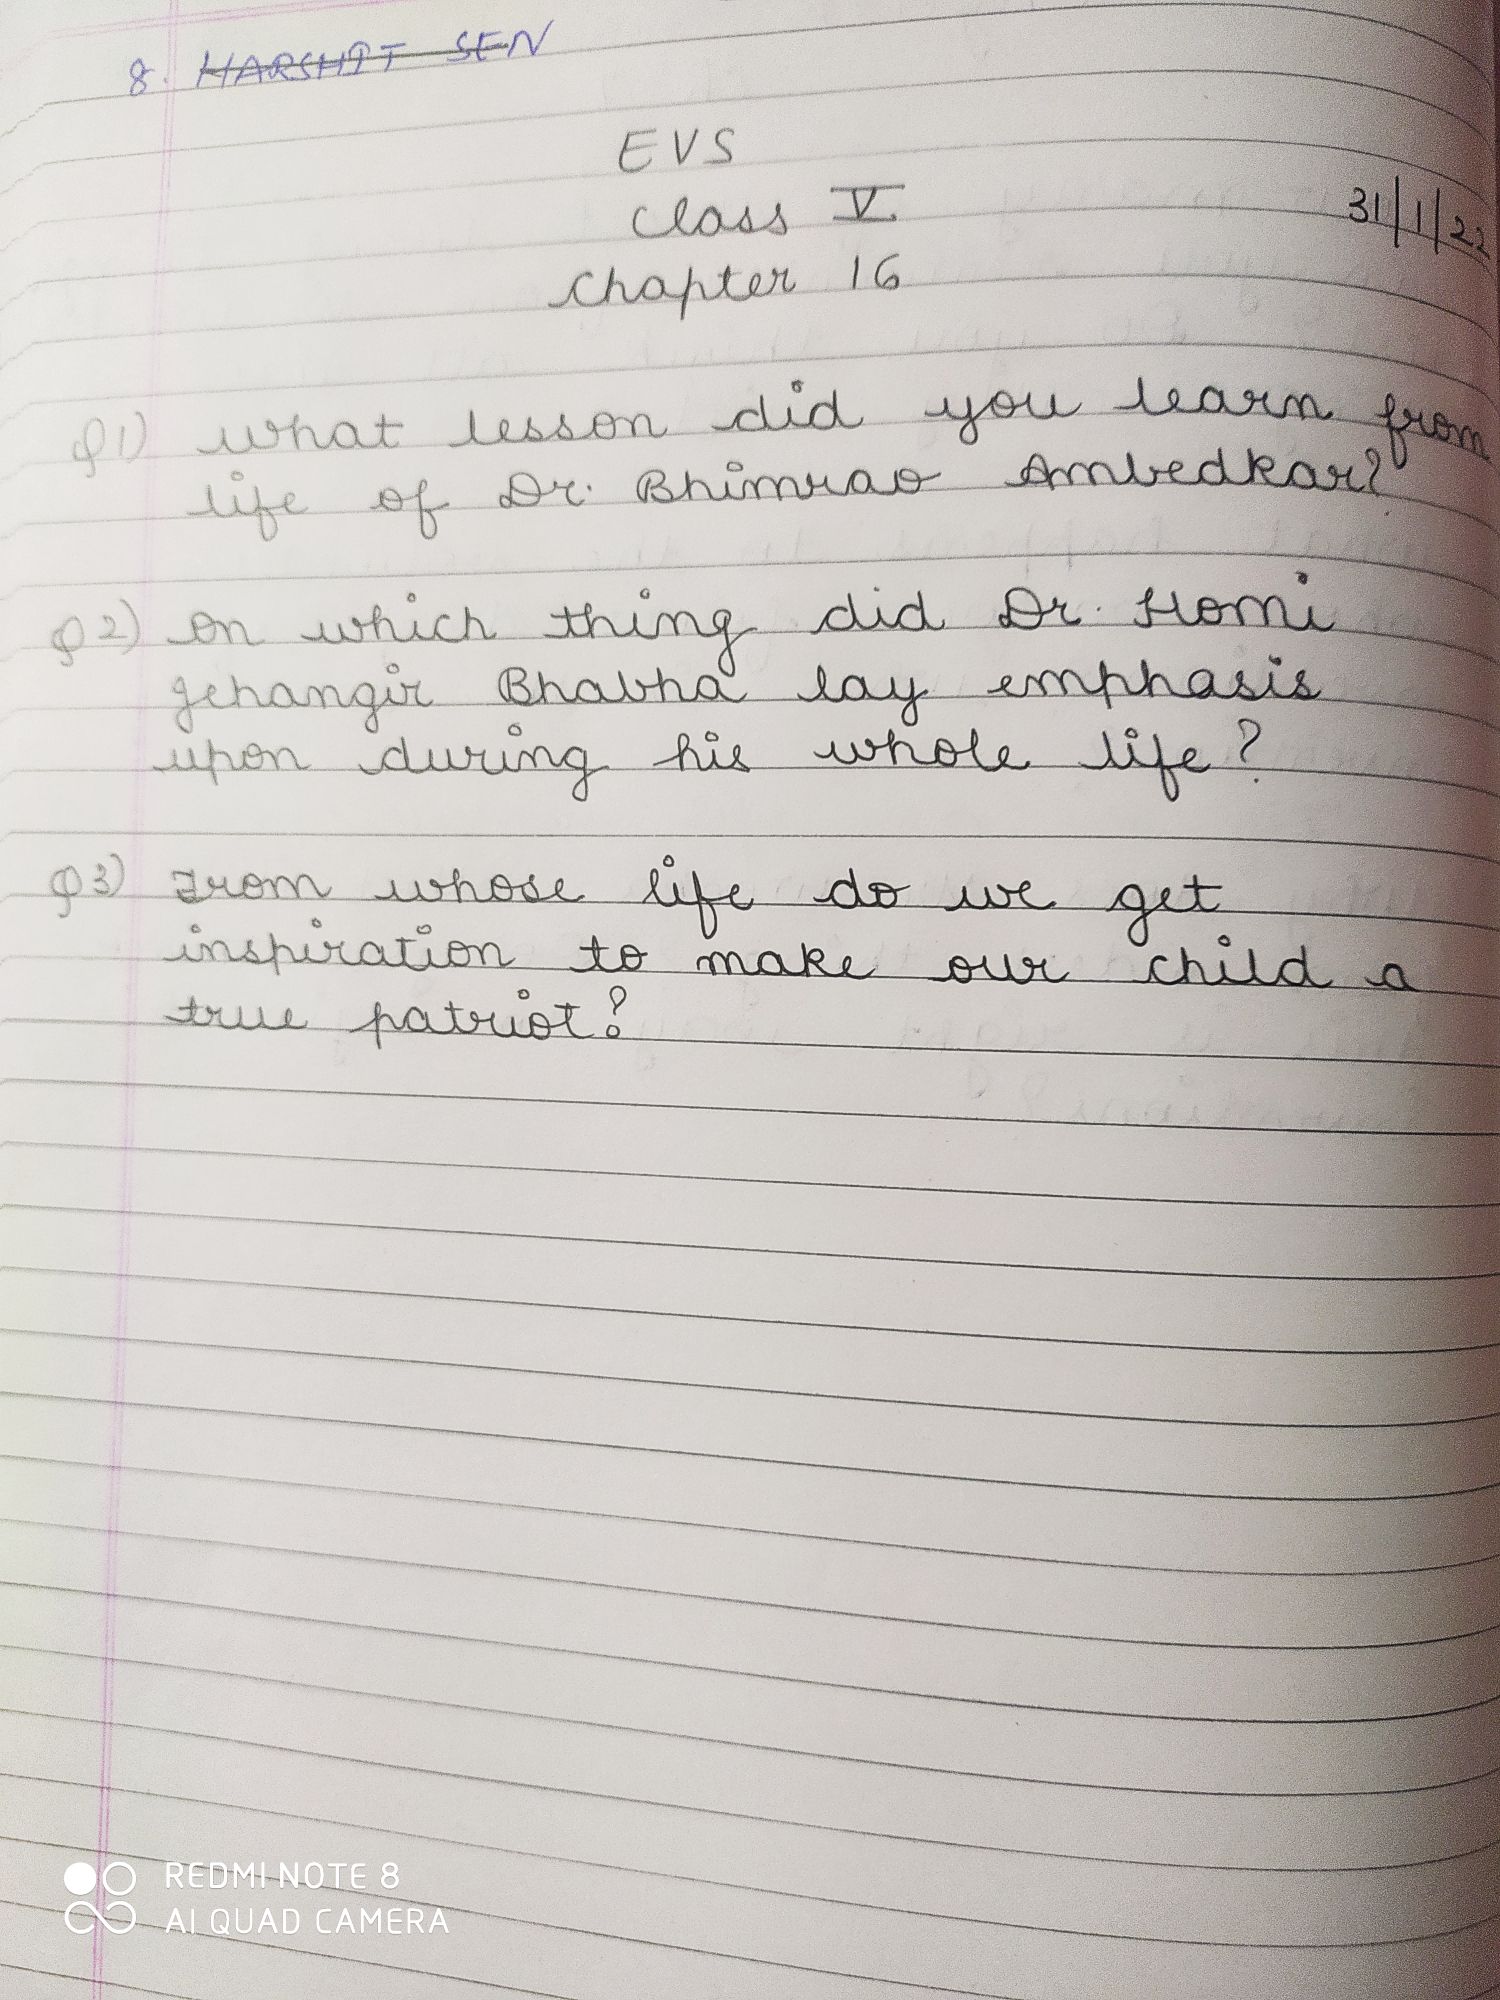 8. HARSHIT SEN
EVS
Class V.
31/1/22
Chapter 16
Q1) What lesson did you learn from
life of Dr. Bhimrao Ambedkar?
Q2) On which thing did Dr. Homi
Jehangir Bhabha lay emphasis
upon during his whole life?
Q3) From whose life do we get
inspiration to make our child a
true patriot?
REDMI NOTE 8
AI QUAD CAMERA